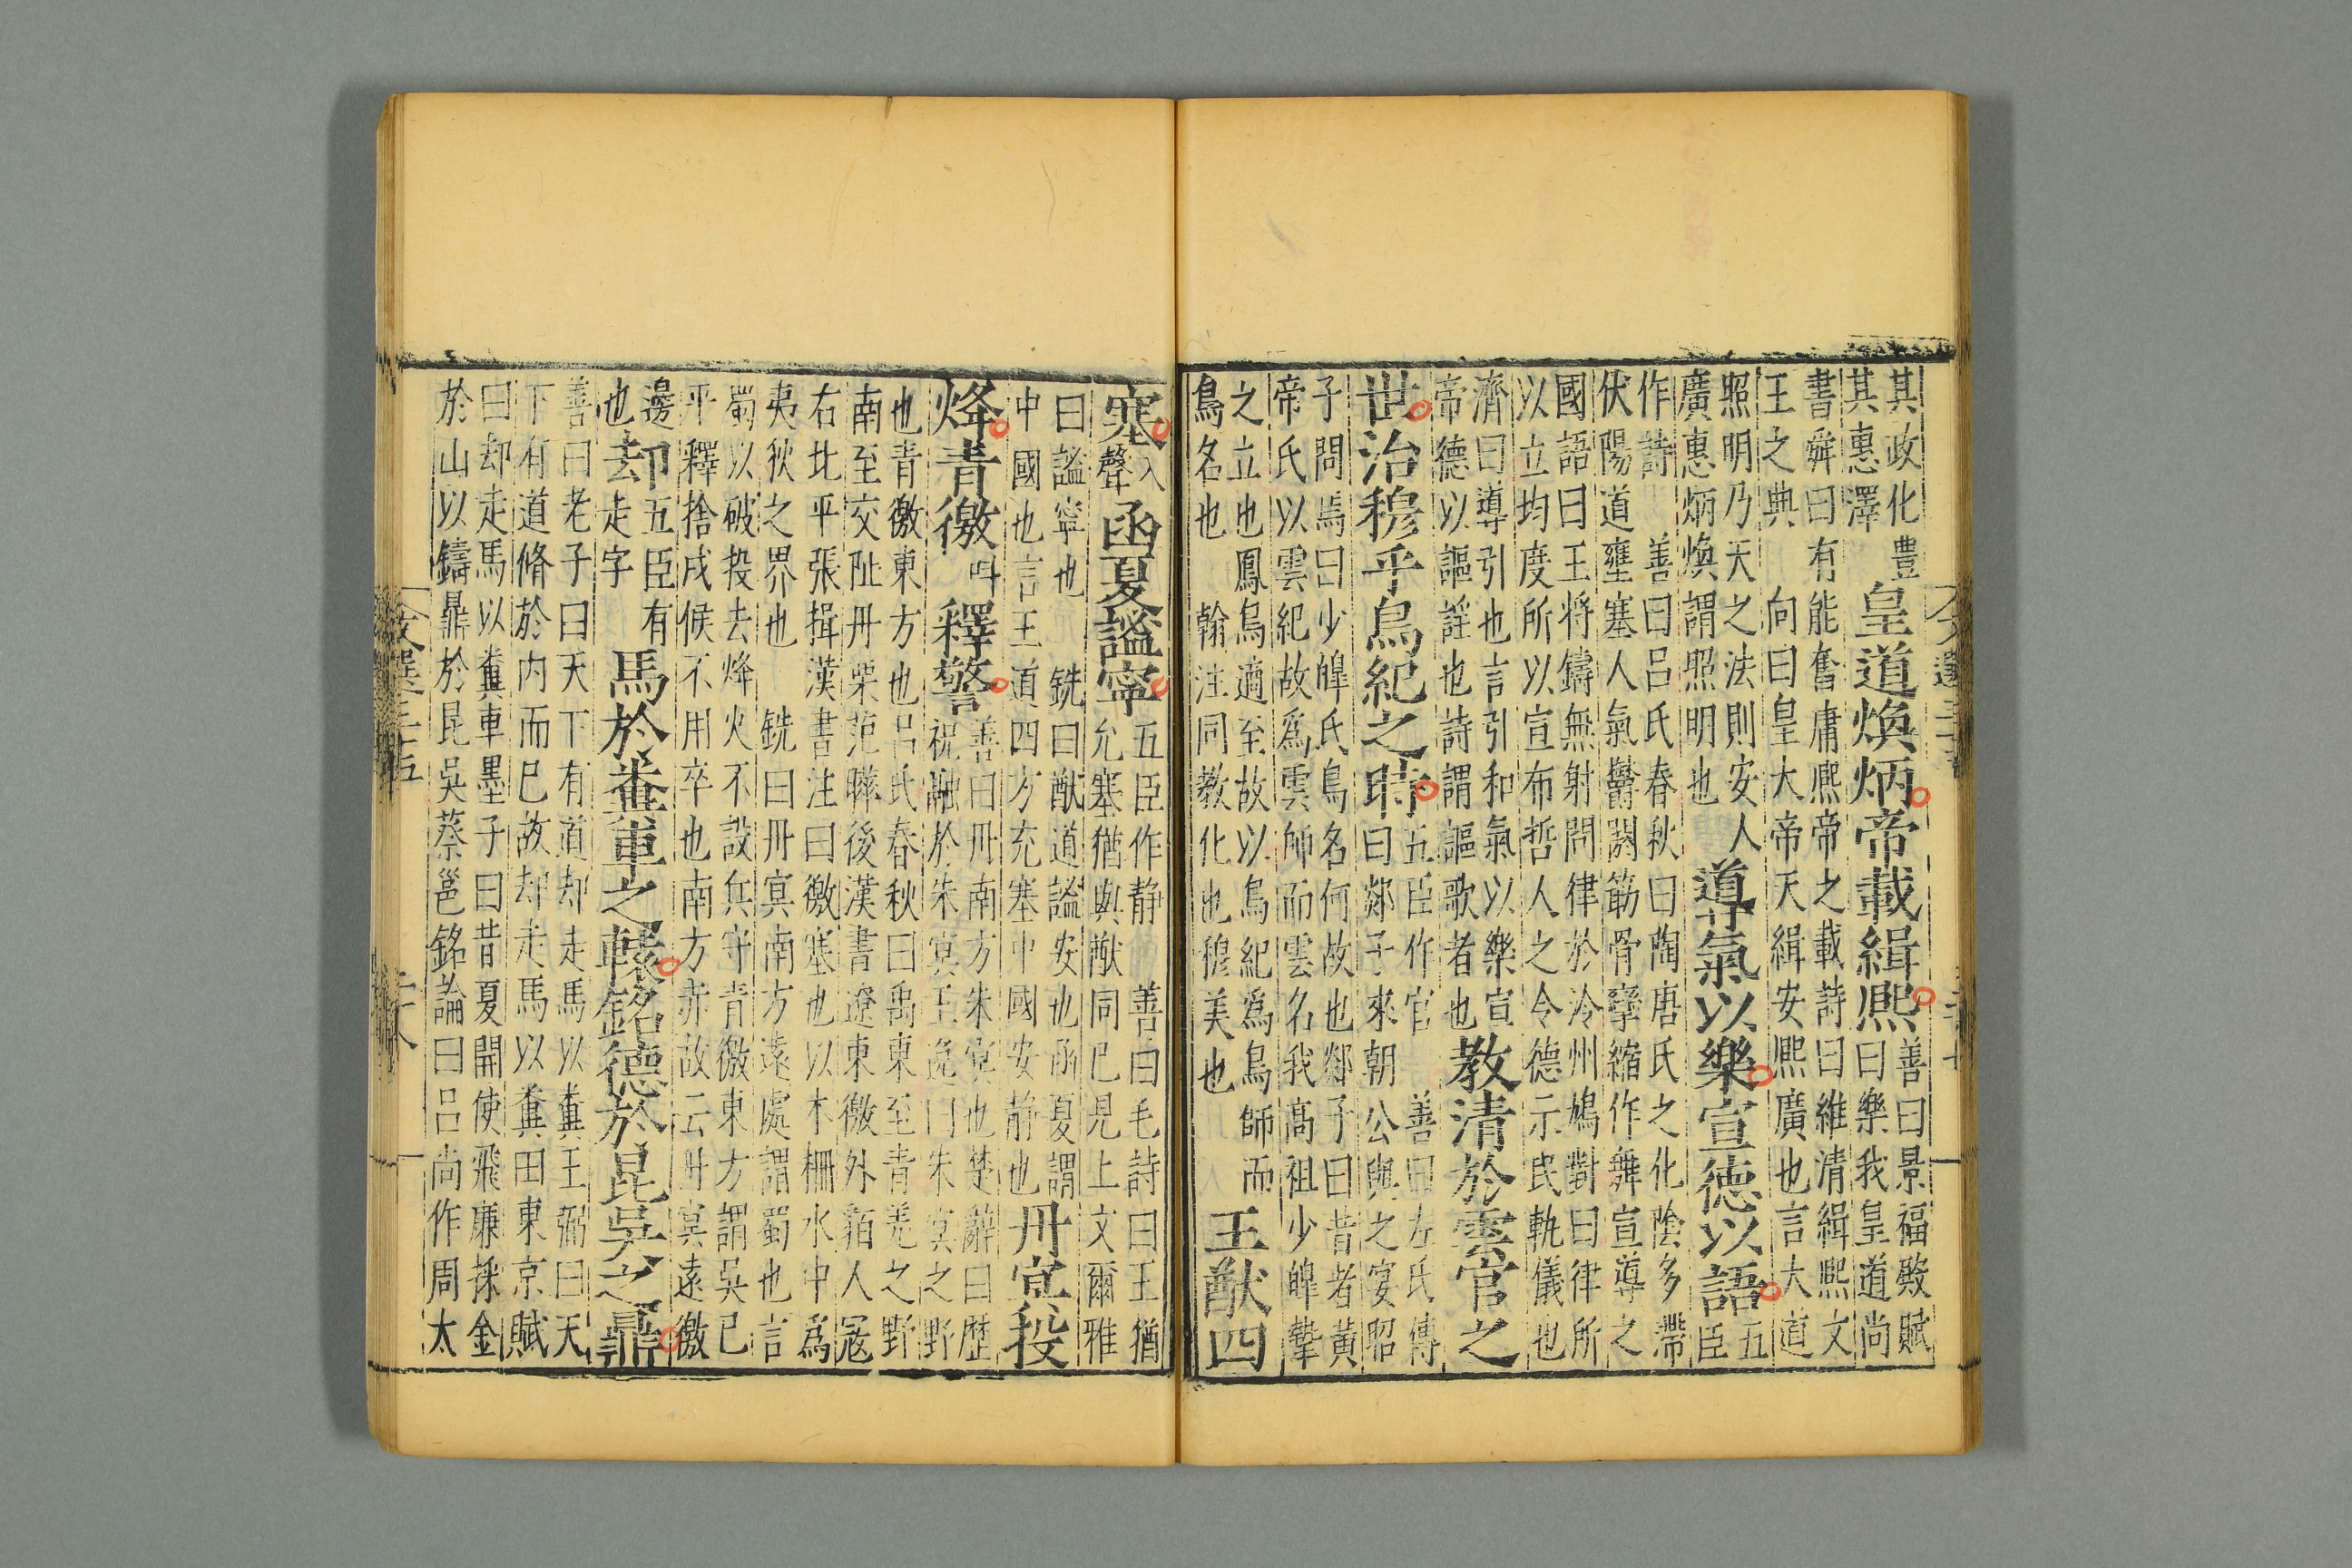 其政化豐
其惠澤
皇道煥炳帝載緝熙
善曰景福殿賦
曰樂我皇道尚
書舜曰有能奮庸熙帝之載詩曰維清緝熙文
王之典
向曰皇大帝天緝安熙廣也言大道
照明乃天之法則安人
廣惠炳煥謂照明也
道氣以樂宣德以語
五
臣
作詩
善曰呂氏春秋曰陶唐氏之化陰多滯
伏陽道壅塞人氣鬱閼筋骨攣縮作舞宣導之
國語曰王將鑄無射問律於泠州鳩對曰律所
以立均度所以宣布哲人之令德示民軌儀也
濟曰導引也言引和氣以樂宣
帝德以謳謡也詩謂謳歌者也
教清於雲官之
世治穆乎鳥紀之時
五臣作官
善曰左氏傳
曰郯子來朝公與之宴昭
子問焉曰少皥氏鳥名何故也郯子曰昔者黃
帝氏以雲紀故爲雲師而雲名我高祖少皥摯
之立也鳳鳥適至故以鳥紀爲鳥師而
鳥名也
翰注同教化也穆美也
王猷四
塞
入
聲
函夏謐寧
五臣作静
善曰毛詩曰王猶
允塞猶與猷同已見上文爾雅
曰謐寧也
銑曰猷道謐安也函夏謂
中國也言王道四方充塞中國安静也
丹㝠投
烽青徼
叫
釋警
善曰丹南方朱㝠也楚辭曰歷
祝融於朱㝠王逸曰朱㝠之野
也青徼東方也呂氏春秋曰禹東至青羌之野
南至交阯丹粟范曄後漢書遼東徼外貊人寇
右北平張揖漢書注曰徼塞也以木柵水中爲
夷狄之界也
銑曰丹㝠南方遠處謂蜀也言
蜀以破投去烽火不設兵守青徼東方謂吳已
平釋捨戍候不用卒也南方赤故云丹㝠遠徼
邊
也
却
五臣有
走字
馬於糞車之轅銘德於昆吳之鼎
善曰老子曰天下有道却走馬以糞王弼曰天
下有道脩於内而已故却走馬以糞田東京賦
曰却走馬以糞車墨子曰昔夏開使飛廉採金
於山以鑄鼎於昆吳蔡邕銘論曰呂尚作周太